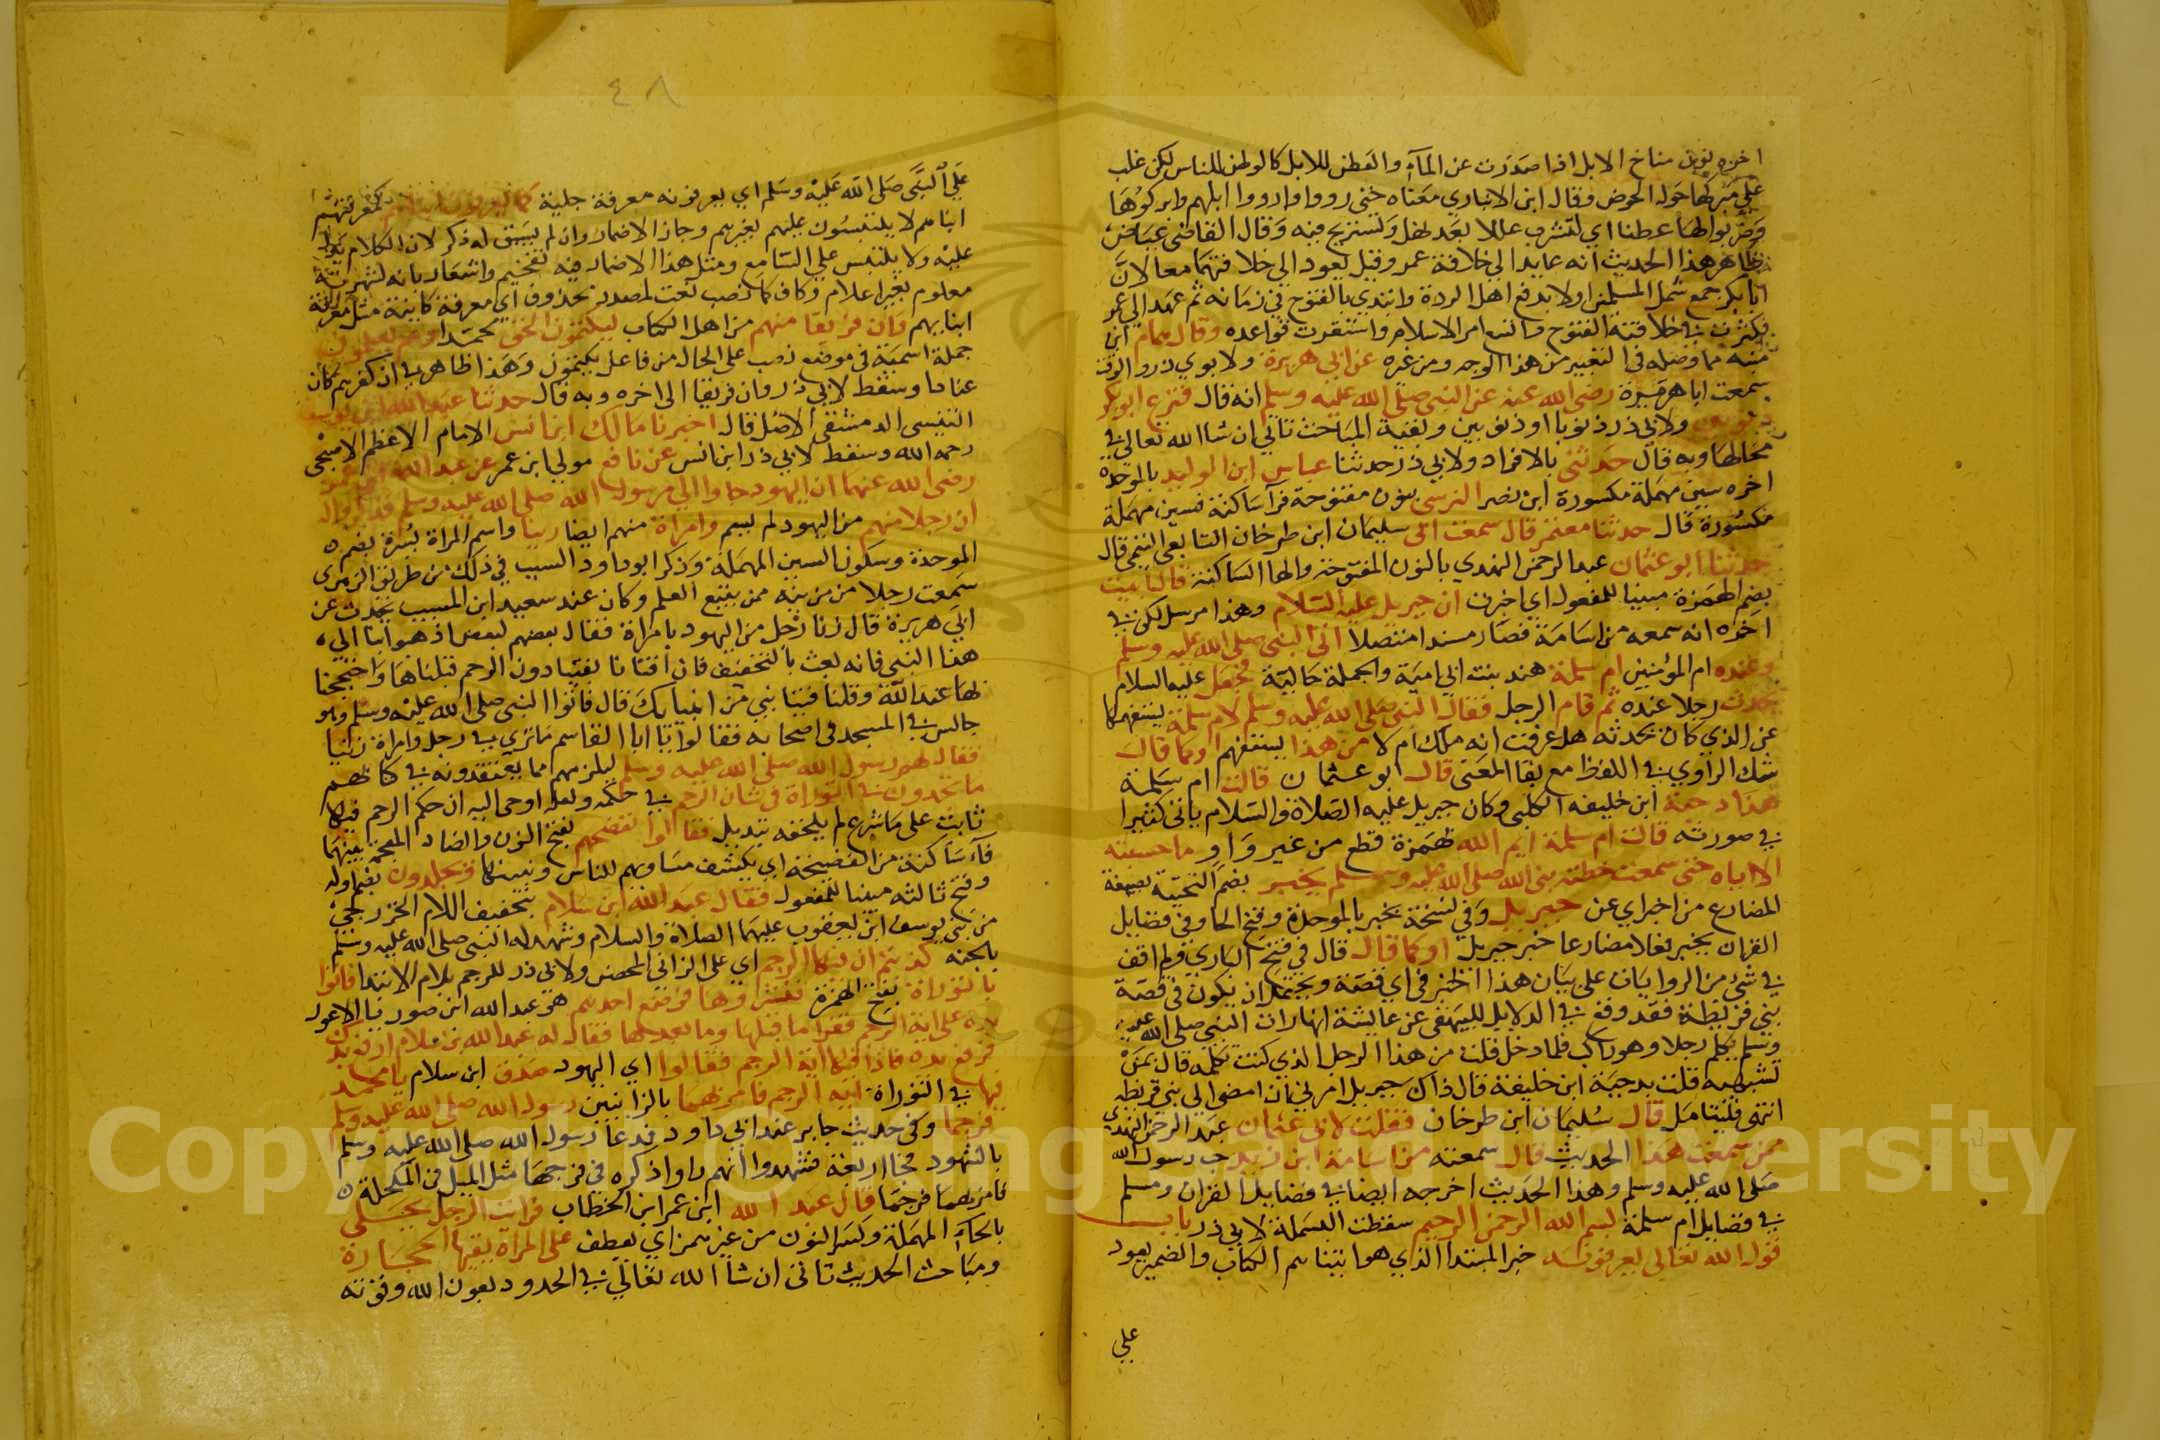 اخره نون مناخ الابل اذا صدرت عن المآء والعطن للابل كالوطن للناس لكن غلب
علي مبركها حول الحوض وقال ابن الانباري معناه حتي رووا وارووا ابلهم وابركوها
وضربوا لها عطنا اي لتشرب عللا بعد نهل وتستريح فيه وقال القاضي عياض
ظاهر هذا الحديث انه عايد الي خلافة عمر وقيل يعود الي خلافتهما معا لان
ابا بكر جمع شمل المسلمين اولا بدفع اهل الردة وابتدي بالفتوح في زمانه ثم عهد الي عمر
فكثرت في خلافته الفتوح واتسع امر الاسلام واستقرت قواعده وقال همام ابن
منبه مما وصله في التعبير من هذا الوجه ومن غيره عن ابي هريرة ولابوي ذر والوقت
سمعت ابا هريرة رضي الله عنه عن النبي صلي الله عليه وسلم انه قال فنزع ابو بكر
ذنوبين ولابي ذر ذنوبا او ذنوبين وبقية المباحث تاتي ان شا الله تعالي في
محالها وبه قال حدثني بالافراد ولابي ذر حدثنا عباس ابن الوليد بالموحدة
اخره سين مهملة مكسورة ابن نصر النرسي بنون مفتوحة فرآ ساكنة فسين مهملة
مكسورة قال حدثنا معتمر قال سمعت ابي سليمان ابن طرخان التابعي التيمي قال
حدثنا ابو عثمان عبد الرحمن النهدي بالنون المفتوحة والها الساكنة قال انبيت
بضم الهمزة مبنيا للمفعول اي اخبرت ان جبريل عليه السلام وهذا مرسل لكن في
اخره انه سمعه من اسامة فصار مسندا متصلا اتي النبي صلي الله عليه وسلم
وعنده ام المؤمنين ام سلمة هند بنت ابي امية والجملة حالية فجعل عليه السلام
يحدث رجلا عنده ثم قام الرجل فقال النبي صلي الله عليه وسلم لام سلمة يستفهمها
عن الذي كان يحدثه هل عرفت انه ملك ام لا من هذا ليستفهم او كما قال
شك الراوي في اللفظ مع بقا المعني قال ابو عثمان قالت ام سلمة
هذا دحية ابن خليفه الكلبي وكان جبريل عليه الصلاة والسلام ياتي كثيرا
في صورته قالت ام سلمة ايم الله بهمزة قطع من غير واو ما حسبته
الا اياه حتي سمعت خطبة نبي الله صلي الله عليه وسلم يخبر بضم التحتية بصيغة
المضارع من اخبر اي عن جبريل وفي نسخة بخبر بالموحدة وفتح الخا وفي فضايل
القران يخبر فعلا مضارعا خبر جبريل او كما قال قال في فتح الباري ولم اقف
في شئ من الروايات علي بيان هذا الخبر في اي قصة ويحتمل ان يكون في قصة
بني قريظة فقد وقع في الدلايل للبيهقي عن عايشة انها رات النبي صلي الله عليه
وسلم يكلم رجلا وهو راكب فلما دخل قلت من هذا الرجل الذي كنت تكلمه قال بمن
تشبهيه قلت بدحية ابن خليفة قال ذاك جبريل امرني ان امضي الي بني قريظه
انتهي فليتامل قال سليمان ابن طرخان فقلت لابي عثمان عبد الرحمن النهدي
ممن سمعت هذا الحديث قال سمعته من اسامة ابن زيد حب رسول الله
صلي الله عليه وسلم وهذا الحديث اخرجه ايضا في فضايل القران ومسلم
في فضايل ام سلمة بسم الله الرحمن الرحيم سقطت البسملة لابي ذر باب
قول الله تعالي يعرفونه خبر المبتدا الذي هو اتيناهم الكتاب والضمير يعود
علي
٤٨
علي النبي صلي الله عليه وسلم اي يعرفونه معرفة جلية كما يعرفون ابناهم كمعرفتهم
ابناهم لا يلتبسون عليهم بغيرهم وجاز الاضمار وان لم يسبق له ذكر لان الكلام يدل
عليه ولا يلتبس علي السامع ومثل هذا الاضمار فيه تفخيم واشعار بانه لشهرته
معلوم بغير اعلام وكاف كما نصب نعت لمصدر محذوف اي معرفة كاينة مثل معرفة
ابنايهم وان فريقا منهم من اهل الكتاب ليكتمون الحق محمدا وهم يعلمون
جملة اسمية في موضع نصب علي الحال من فاعل يكتمون وهذا ظاهر في ان كفرهم كان
عنادا وسقط لابي ذر وان فريقا الي اخره وبه قال حدثنا عبد الله ابن يوسف
التنيسي الدمشقي الاصل قال اخبرنا مالك ابن انس الامام الاعظم الاصبحي
رحمه الله وسقط لابي ذر ابن انس عن نافع مولي ابن عمر عن عبد الله ابن عمر
رضي الله عنهما ان اليهود جاوا الي رسول الله صلي الله عليه وسلم فذكروا له
ان رجلا منهم من اليهود لم يسم وامراة منهم ايضا زنيا واسم المراة بسرة بضم
الموحدة وسكون السين المهملة وذكر ابو داود السبب في ذلك من طريق الزهري
سمعت رجلا من مزينه ممن يتبع العلم وكان عند سعيد ابن المسيب يحدث عن
ابي هريرة قال زنا رجل من اليهود بامراة فقال بعضهم لبعض اذهبوا بنا الي
هذا النبي فانه بعث بالتخفيف فان افتانا بفتيا دون الرجم قبلناها واحتججنا
بها عند الله وقلنا فتيا نبي من انبيايك قال فاتوا النبي صلي الله عليه وسلم وهو
جالس في المسجد في اصحابه فقالوا يا ابا القاسم ما تري في رجل وامراة زنيا
فقال لهم رسول الله صلي الله عليه وسلم ليلزمهم بما يعتقدونه في كتابهم
ما تجدون في التوراة في شان الرجم في حكمه ولعله اوحي اليه ان حكم الرجم فيها
ثابت علي ما شرع لم يلحقه تبديل فقالوا نفضحهم بفتح النون والضاد المعجمة بينهما
فآء ساكنة من الفضيحة اي يكشف مساويهم للناس ونبينها ويجلدون بضم اوله
وفتح ثالثه مبنيا للمفعول فقال عبد الله ابن سلام بتخفيف اللام الخزرجي
من بني يوسف ابن يعقوب عليهما الصلاة والسلام وشهد له النبي صلي الله عليه وسلم
بالجنه كذبتم ان فيها الرجم اي علي الزاني المحصن ولابي ذر للرجم بلام الابتدا فاتوا
بالتوراة بفتح الهمزة فنشروها فوضع احدهم هو عبد الله ابن صوريا الاعور
يده علي اية الرجم فقرا ما قبلها وما بعدها فقال له عبد الله بن سلام ارفع يدك
فرفع يده فاذا فيها اية الرجم فقالوا اي اليهود صدق ابن سلام يا محمد
فيها في التوراة اية الرجم فامر بهما بالزانيين رسول الله صلي الله عليه وسلم
فرجما وفي حديث جابر عند ابي داود فدعا رسول الله صلي الله عليه وسلم
بالشهود فجا اربعة فشهدوا انهم راوا ذكره في فرجها مثل الميل في المكحلة
فامر بهما فرجما قال عبد الله ابن عمر ابن الخطاب فرايت الرجل يحني
بالحآء المهملة وكسر النون من غير همز اي يعطف علي المراة يقيها الحجارة
ومباحث الحديث تاتي ان شا الله تعالي في الحدود بعون الله وقوته
Copyright © King Saud University